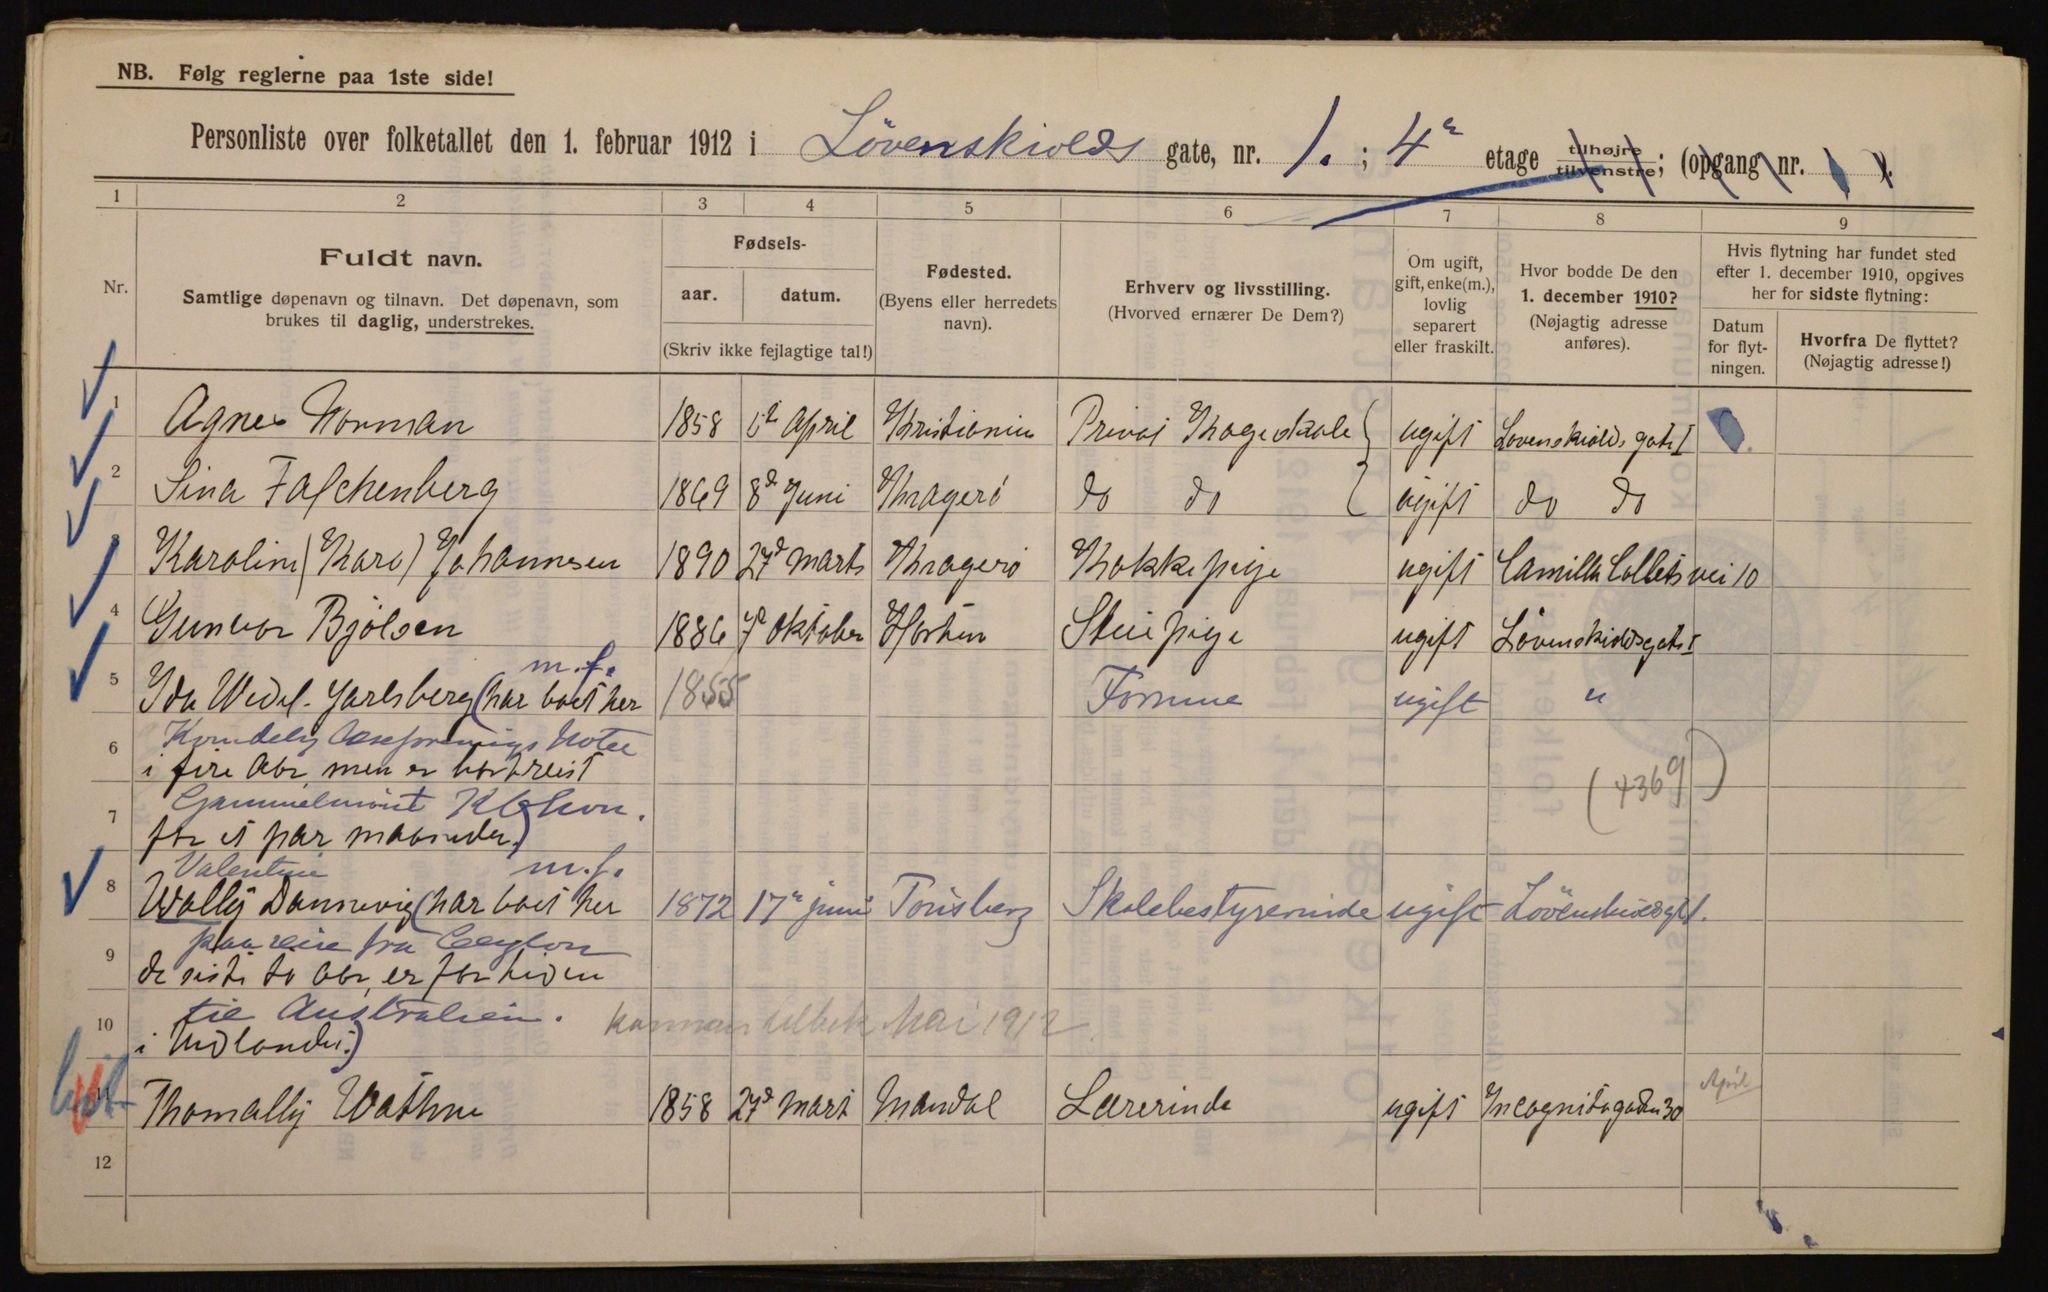 NB. Følg reglerne paa 1ste side!
Personliste over folketallet den 1. februar 1912 i Lövenskiolds gate, nr. 1. ; 4 etage tilhøjre tilvenstre; (opgang nr. ).
1 2 3 4 5 6 7 8 9
Nr.
Fuldt navn.
Samtlige døpenavn og tilnavn. Det døpenavn, som
brukes til daglig, understrekes.
Fødsels-
aar. datum.
(Skriv ikke fejlagtige tal!)
Fødested.
(Byens eller herredets
navn).
Erhverv og livsstilling.
(Hvorved ernærer De Dem?)
Om ugift,
gift, enke(m.),
lovlig
separert
eller fraskilt.
Hvor bodde De den
1. december 1910?
(Nøjagtig adresse
anføres).
Hvis flytning har fundet sted
efter 1. december 1910, opgives
her for sidste flytning:
Datum
for flyt-
ningen.
Hvorfra De flyttet?
(Nøjagtig adresse!)
1 Agnes Norman 1858 April Kristiania Privat ugift Lovenskiolds gate 1
2 Sina Falchenberg 1869 8d Juni Kragerö do do ugift do do
3 Karolin (Kara) Johannesen 1890 27d Marts Kragerö Kokkepige ugift Camilla Colletsvei 10
4 Gunvor Bjölsen 1886 7d Oktober Horten Stuepige ugift Lövenskioldsgate 1
m.f.
5 Ida Wedel-Jarlsberg (har boet her 1855 Formue ugift "
6 Hotel
i fire Aar men er bortreist
(4369)
7
for et par maaneder.)
Valentine m.f.
8 Wally Dannevig (har boet her 1872 17 juni Tönsberg Skolebestyrerinde ugift Lövenskioldsgt 1.
paa reise fra Ceylon
9 de siste to Aar, er for tiden
til Australien.
10 i Udlandet.) kommer tilbake Mai 1912
11 Thomally Wathne 1858 27d Mart Mandal Lærerinde ugift Incognitogaden 30 April
12